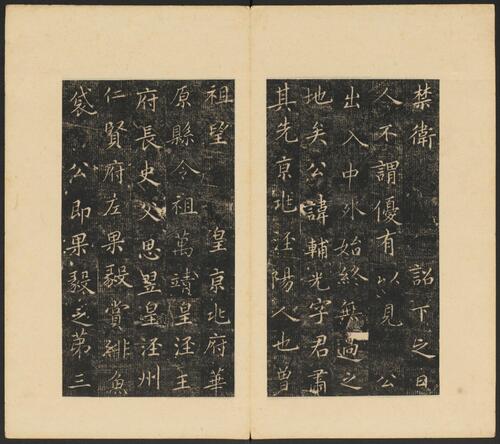 禁衛 詔下之日
令不謂優有以見 公
出入中外始終無過之
地矣公諱輔光字君肅
其先京兆涇陽人也曽
祖望 皇京兆府華
原縣令祖萬靖皇涇王
府長史父思翌皇涇州
仁賢府左果毅賞緋魚
袋 公即果毅之第三